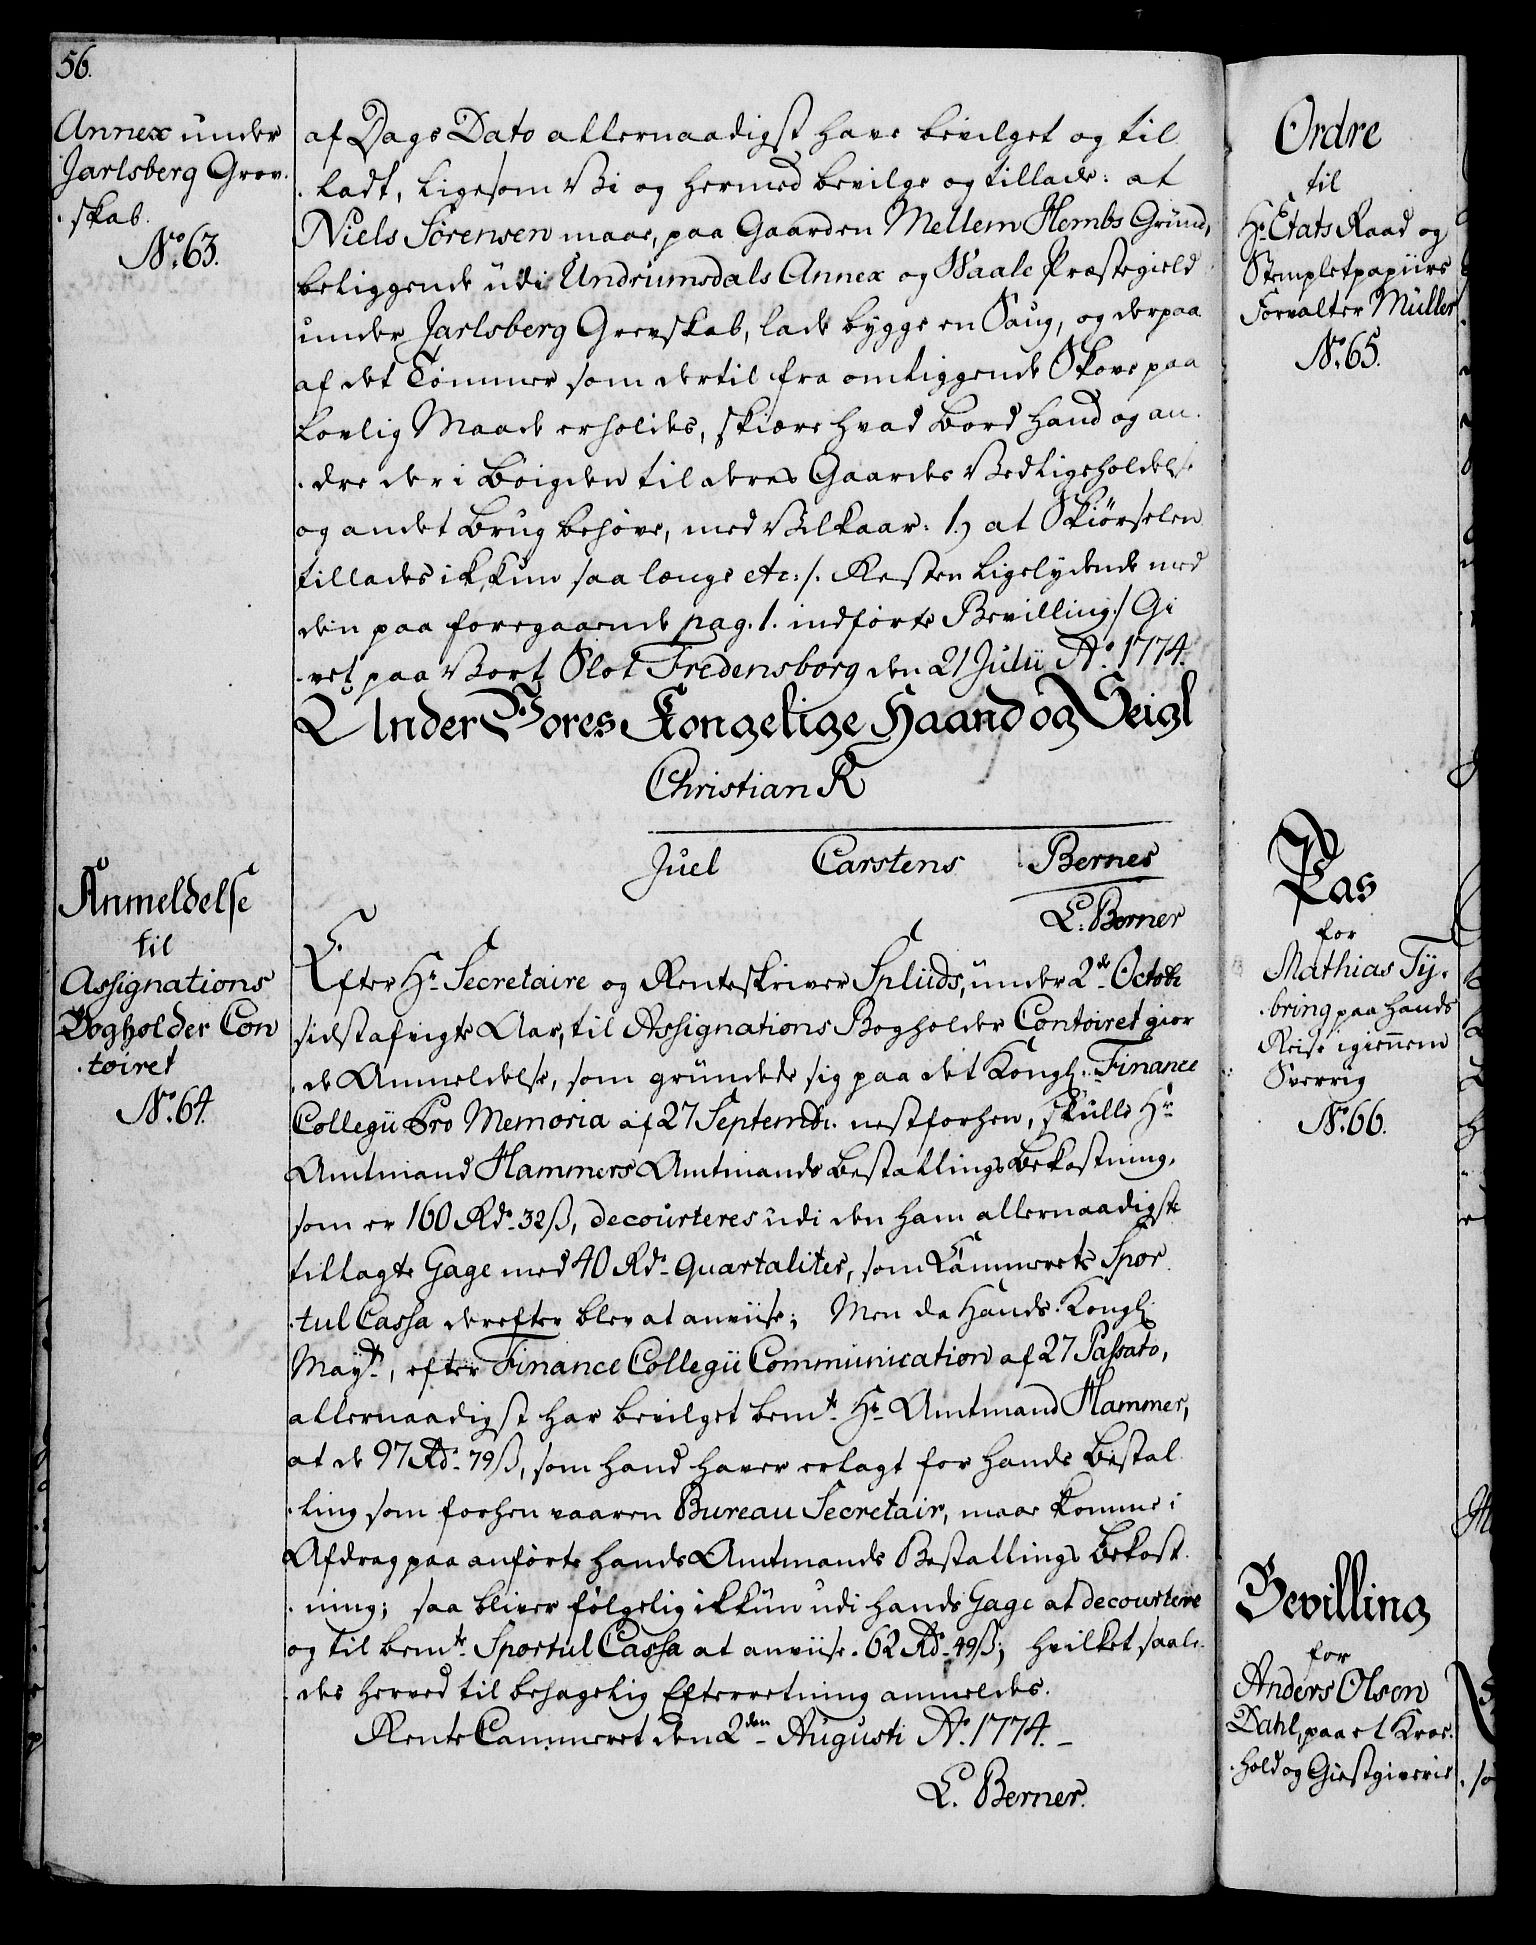 56.
Annex under
Jarlsberg Grev-
-skab.
No. 63.
af Dags Dato allernaadigst have bevilget og til
-ladt, ligesom Vi og hermed bevilge og tillade: at
Niels Sörensen maae, paa Gaarden Mellem Hembs Grund,
beliggende udi Undrumsdals Annex og Waale Præstegield
under Jarlsberg Grevskab, lade bygge en Saug, og derpaa
af det Tömmer som dertil fra omliggende Skove paa
Lovlig Maade erholdes, skiære hvad Bord hand og an-
-dre der i Böigden til deres Gaardes Vedligeholdelse
og andet Brug behöve, med Vilkaar: 1.) at Skiörselen
tillades ikkun saa længe etc: /: Resten ligelydende med
den paa foregaaende pag. 1. indförte Bevilling :/ Gi
-vet paa Vort Slot Fredensborg den 21 Julii Ao. 1774.
Under Vores Kongelige Haand og Seigl
Christian R
Juel Carstens Berner
L: Berner
Anmeldelse
til
Assignations
Bogholder Con
-toiret
No. 64.
Efter Hr. Secretaire og Renteskriver Spliids, under 2de Octobr
sidstafvigte Aar, til Assignations Bogholder Contoiret gior
-de Anmeldelse, som grundede sig paa det Kongl: Finance
Collegii Pro Memoria af 27 Septembr. nestforhen, skulle Hr.
Amtmand Hammers Amtmands Bestallings Bekostning,
som er 160 Rdr. 32 ß, decourteres udi den ham allernaadigst
tillagte Gage med 40 Rdr. quartaliter, som Kammerets Spor-
-tul Cassa derefter blev at anviise; Men da Hands Kongl:
Mayt., efter Finance Collegii Communication af 27 Passato,
allernaadigst har bevilget bemte. Hr. Amtmand Hammer,
at de 97 Rdr. 79 ß, som hand haver erlagt for hands Bestal
-ling som forhen vaaren Bureau Secretair, maae komme i
Afdrag paa anförte hands Amtmands Bestallings Bekost-
-ning; saa bliver fölgelig ikkun udi hands Gage at decourtere
og til bemte. Sportul Cassa at anviise 62 Rdr. 49 ß; hvilket saale-
-des herved til behagelig Efterretning anmeldes.
Rente Cammeret den 2den Augusti Ao. 1774.
L. Berner.
Ordre
til
Hr. Etats Raad og
Stempletpapiirs
Forvalter Müller
No. 65.
Pas
for
Mathias Ty-
-bring paa hands
Reise igiennem
Sverrig
No. 66.
Bevilling
for
Anders Olsen
Dahl, paa et Kroe-
-hold og Giestgiverie